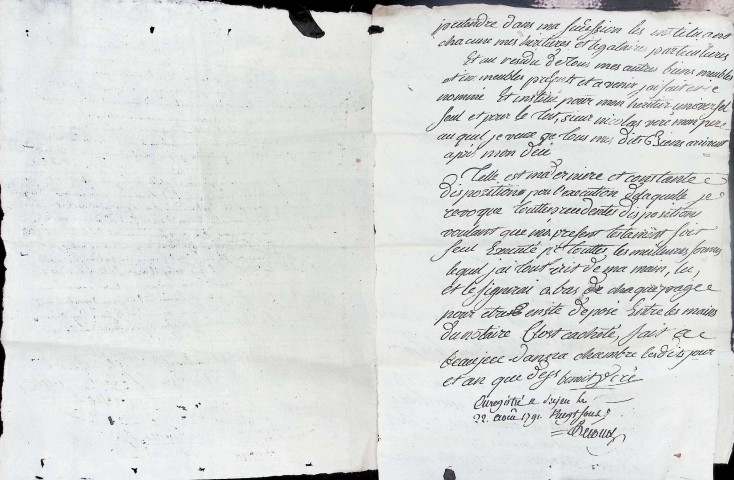 pretendre dans ma succession les instituant
chacune mes heritieres et legataires particulieres
Et au residu de tous mes autres biens meubles
et immeubles presents et a venir jai fait et
nommé Et institué pour mon heritier universel
seul et pour le tout, sieur nicolas mon frere
auquel je veux que tous mes dits Biens arrivent
apres mon deces
Telle est ma derniere et constante
dispositions pour l'execution de laquelle je
revoque touttes precedentes dispositions
voulant que mes present testament soit
seul Executé par touttes les meilleures formes
lequel jai tout Ecrit de ma main, lu,
et le signerai a bas de chaque page
pour etre ensite deposé Entre les mains
du notaire Clost cacheté, fait a
Beaujeu dans ma chambre lesdits jour
et an que dess benoit
Enregistré a Beaujeu le
22 aoust 1791 Vingt sous